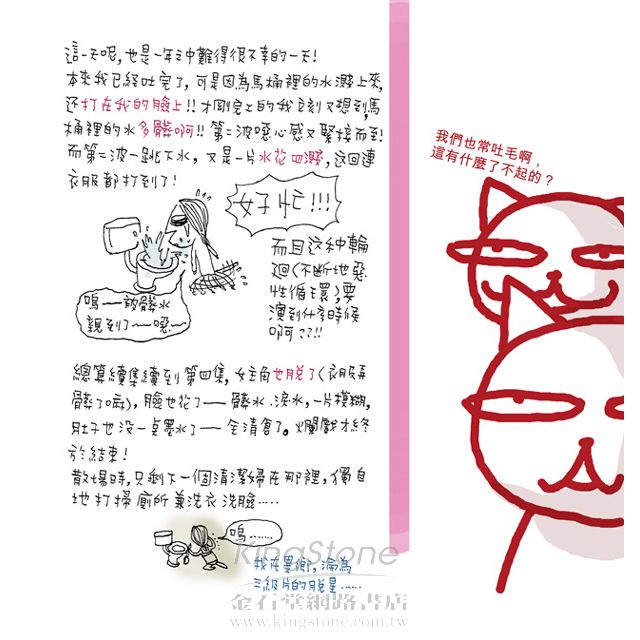 這一天呢,也是一年之中難得很不幸的一天!
本來我已經吐完了,可是因為馬桶裡的水濺上來,
还打在我的臉上!!才剛完工的我立刻又想到,馬
桶裡的水多髒啊!!第二波噁心感又緊接而至!
而第二波一跳下水,又是一片水花四濺,这回連
衣服都打到了!
好忙!!!
而且这种輪
迴(不斷地惡
性循環),要
演到什麼時候
啊??!!
嗚——被髒水
親到了~~噁~~
總算續集續到第四集,女主角也脫了(衣服弄
髒了嘛),臉也花了——髒水.淚水,一片模糊,
肚子也没一点墨水了——全清倉了。爛戲才終
於結束!
散場時,只剩下一個清潔婦在那裡,獨自
地打掃廁所兼洗衣洗臉……
嗚……
我在異鄉,淪為
三級片的脫星……
我們也常吐毛啊,
這有什麼了不起的?
KingStone
金石堂網路書店
www.kingstone.com.tw